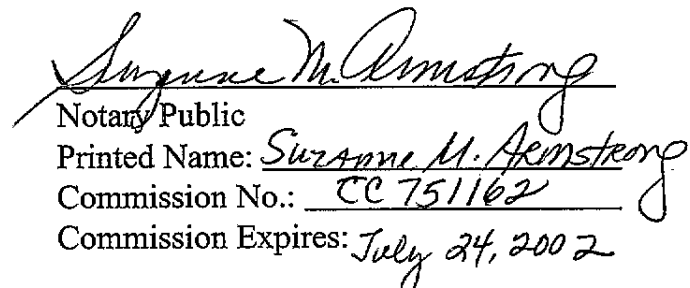 Suzanne M. Armstrong
Notary Public
Printed Name: Suzanne M. Armstrong
Commission No.: CC 751162
Commission Expires: July 24, 2002